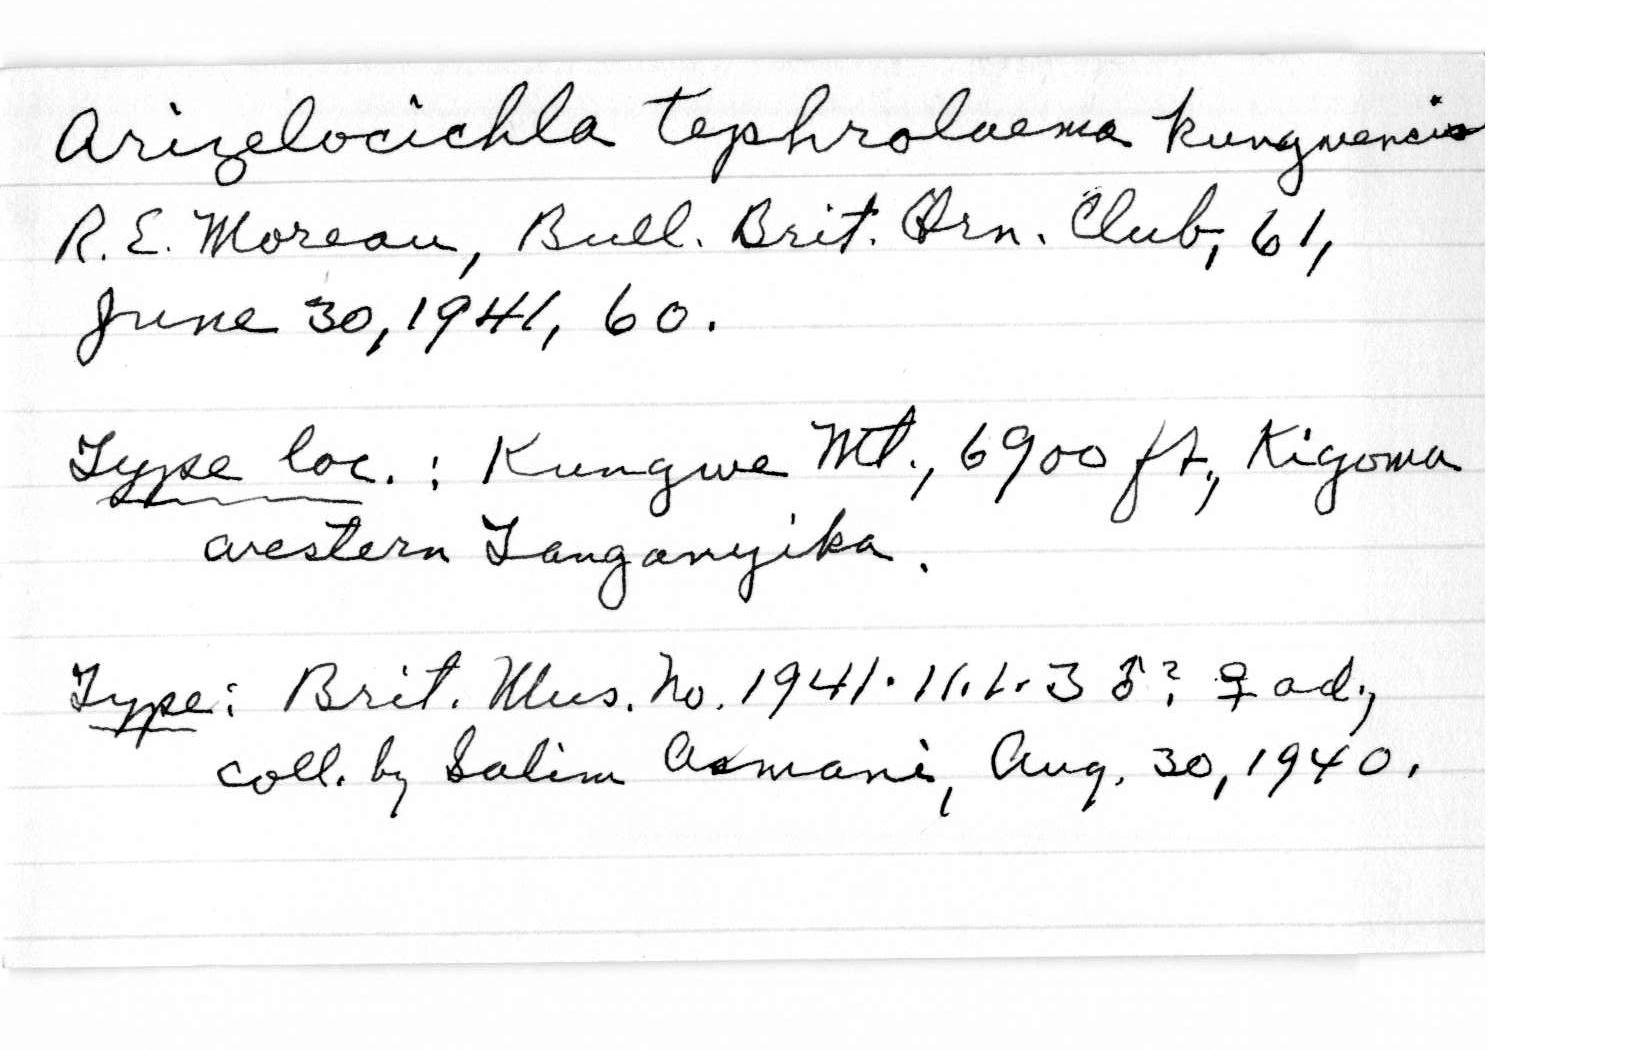 Arizelocichla tephrolaema kungwensis
R. E. Moreau, Bull. Brit. Orn. Club, 61,
June 30, 1941, 60.
Type loc. : Kungwe Mt., 6900 ft., Kigoma
western Tanganyika.
Type: Brit. Mus. No. 1941.11.1.3 ♂? ♀ ad.,
coll. by Salim Asmani, Aug. 30, 1940.